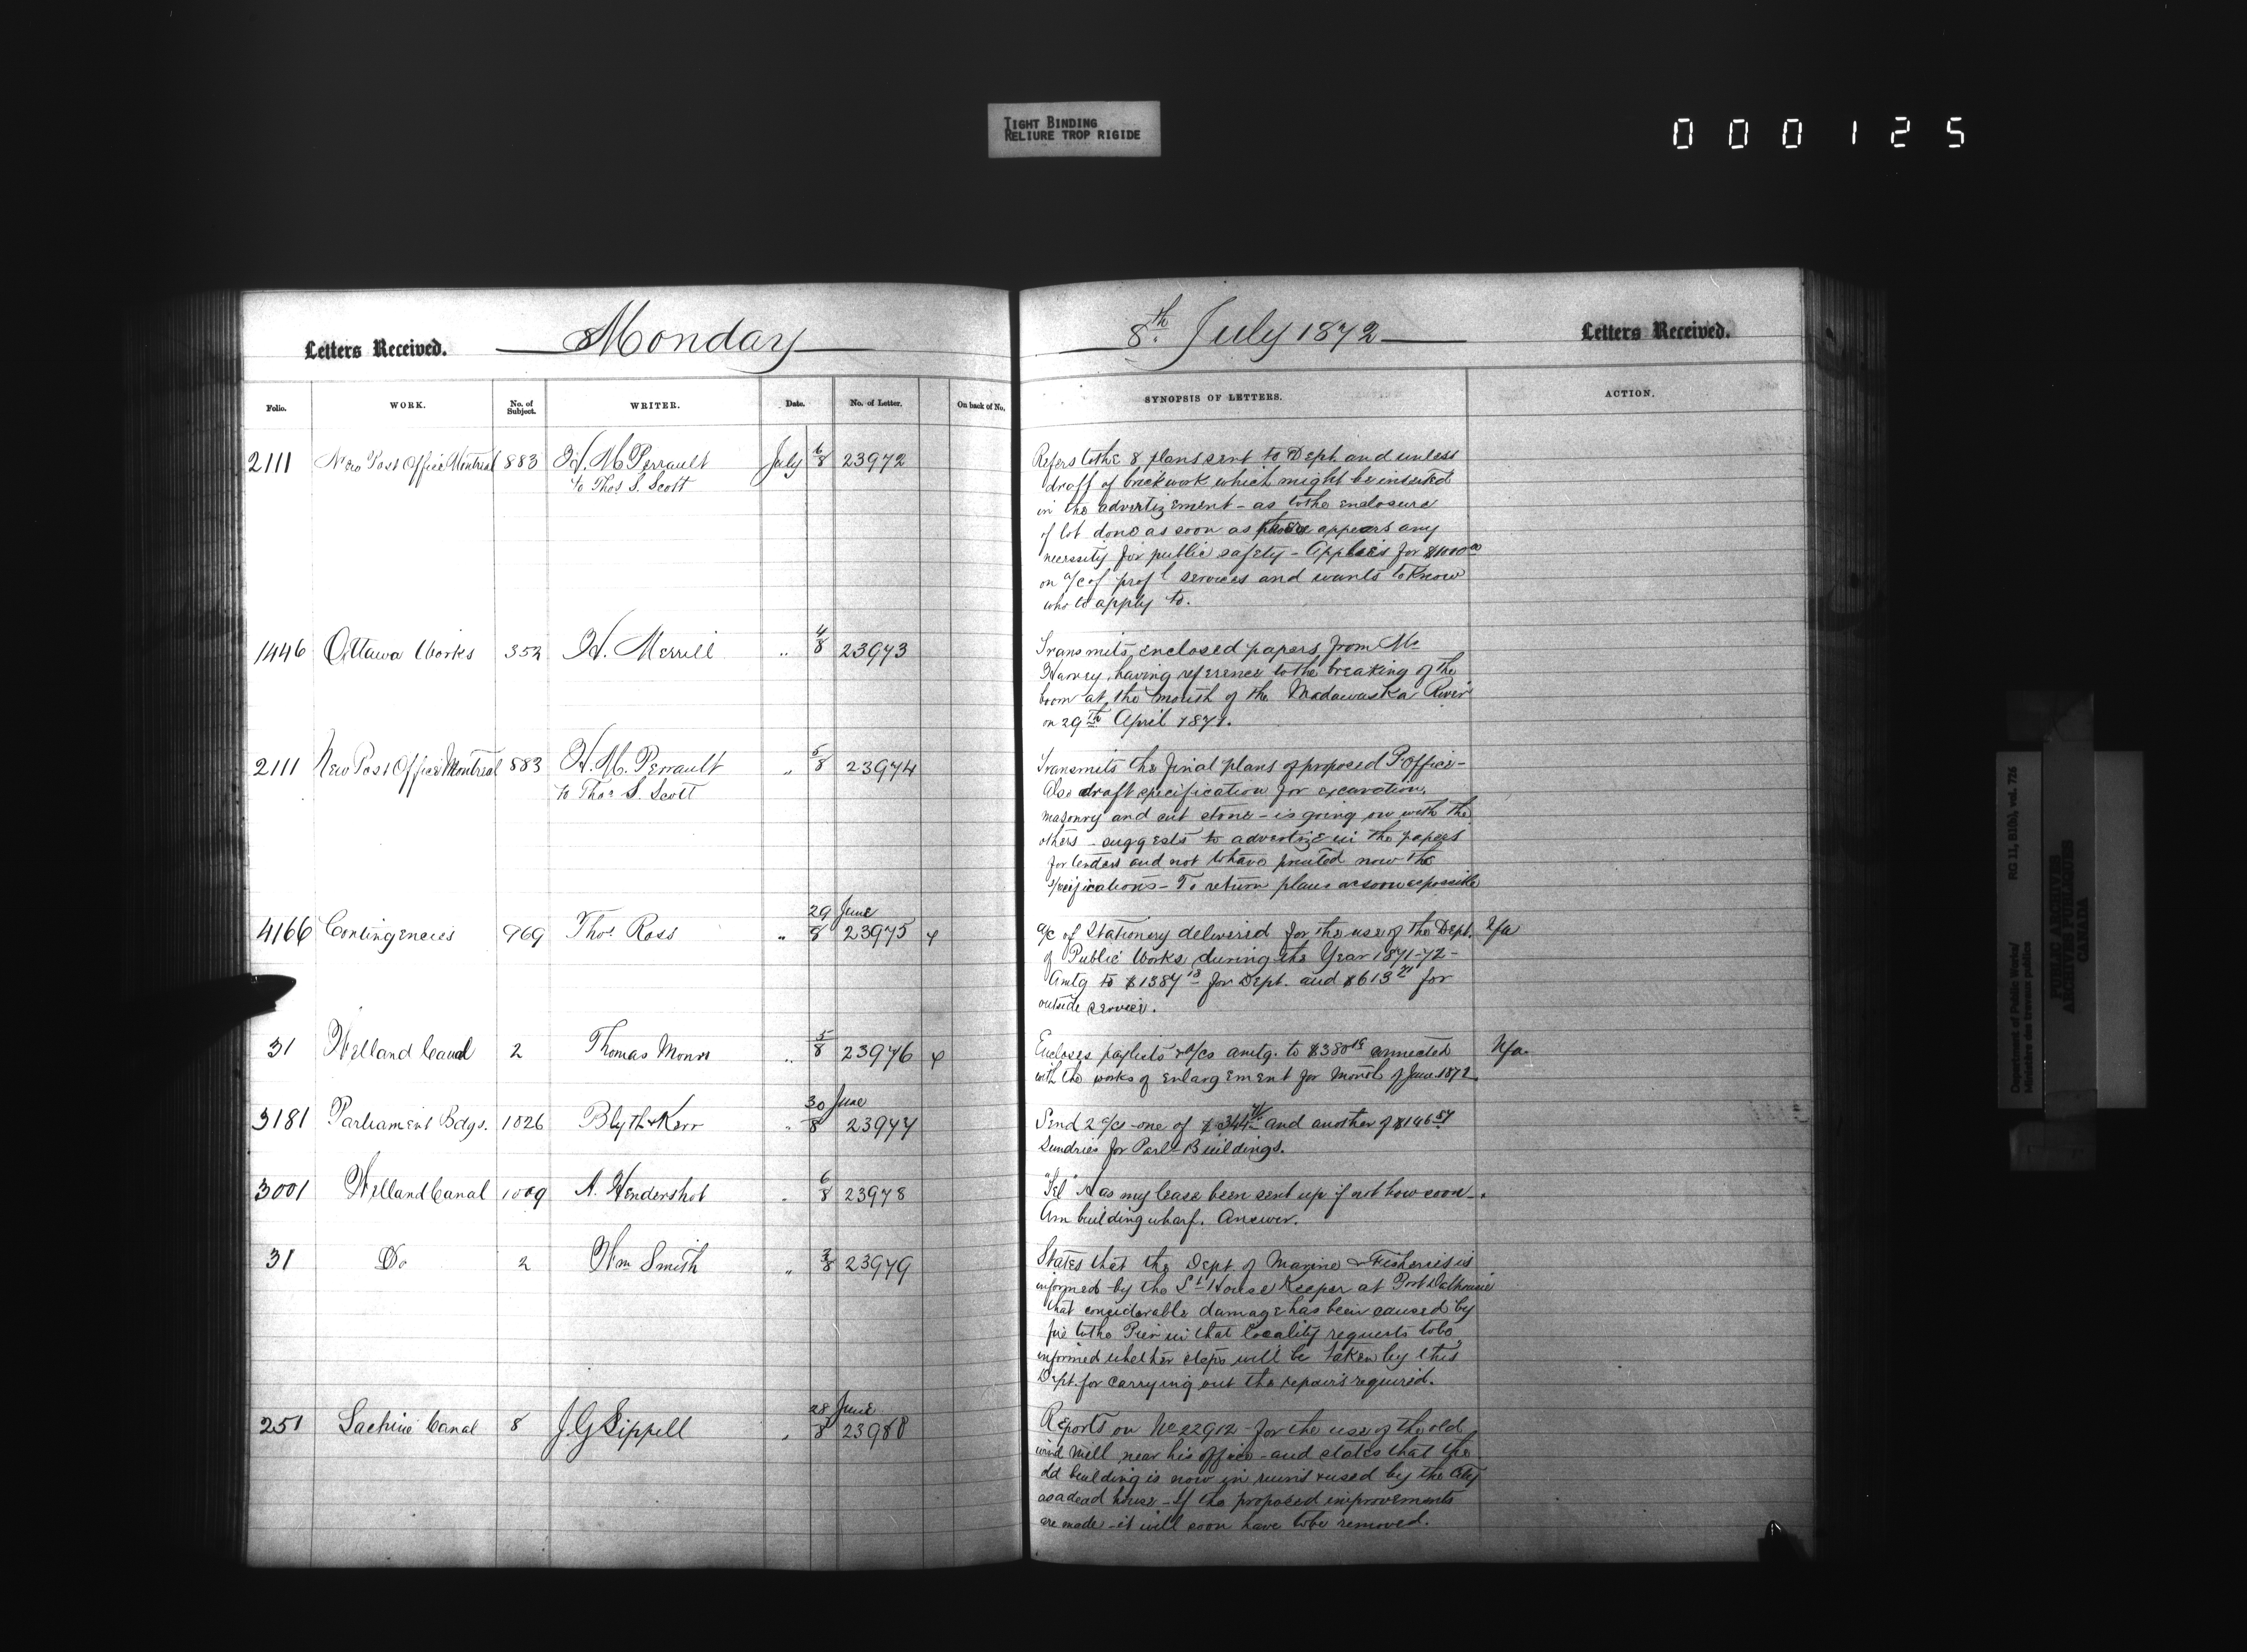 TIGHT BINDING
RELIURE TROP RIGIDE
000125
Letters Received. Monday
8th July 1872 Letters Received.
Folio. WORK. No. of Subject. WRITER. Date. No. of Letter. On back of No.
SYNOPSIS OF LETTERS. ACTION.
2111 New Post Office Montreal 883 H. M. Perrault July 6/8 23972
to Thos S. Scott
Refers to the 8 plans sent to Dept. and unless
draft of brickwork which might be inserted
in the advertizement - as to the enclosure
of lot done as soon as there appears any
necessity for public safety - Applies for $1000.00
on a/c of profl services and wants to know
who to apply to.
1446 Ottawa Works 352 H. Merrill " 4/8 23973
Transmits enclosed papers from Mr
Harvey, having reference to the breaking of the
boom at the mouth of the Madawaska River
on 29th April 1871.
2111 New Post Office Montreal 883 H. M. Perrault " 5/8 23974
to Thos S. Scott
Transmits the final plans of proposed P office -
Also draft specification for excavation,
masonry and cut stone - is going on with the
others - suggests to advertize in the papers
for tenders and not to have printed now the
specifications - To return plans as soon as possible
4166 Contingencies 969 Thos Ross " 29 June/8 23975
a/c of Stationery delivered for the use of the Dept.
of Public Works during the Year 1871-72 -
Amtg to $1387 18 for Dept. and $613 71 for
outside service.
31 Welland Canal 2 Thomas Monro " 5/8 23976
Encloses paylists & a/cs amtg. to $380 19 connected
with the works of enlargement for Month of June 1872.
3181 Parliament Bdgs. 1026 Blyth & Kerr " 30 June/8 23977
Send 2 a/cs - one of $344 and another of $146 57
Sundries for Parlt Buildings.
3001 Welland Canal 1009 A. Hendershot " 6/8 23978
"Tel" Has my lease been sent up if not how soon -.
Am building wharf. Answer.
31 Do 2 Wm Smith " 3/8 23979
States that the Dept. of Marine & Fisheries is
informed by the Lt House Keeper at Port Dalhousie
that considerable damage has been caused by
fire to the Pier in that locality requests to be
informed whether steps will be taken by this
Dept. for carrying out the repairs required.
251 Lachine Canal 8 J G Sippell " 28 June/8 23980
Reports on No 22912 - for the use of the old
wind mill near his office - and states that the
old building is now in ruins & used by the City
as a dead house - If the proposed improvements
are made - it will soon have to be removed.
Department of Public Works/ RG 11, B1(b), vol. 726
Ministère des travaux publics
PUBLIC ARCHIVES
ARCHIVES PUBLIQUES
CANADA